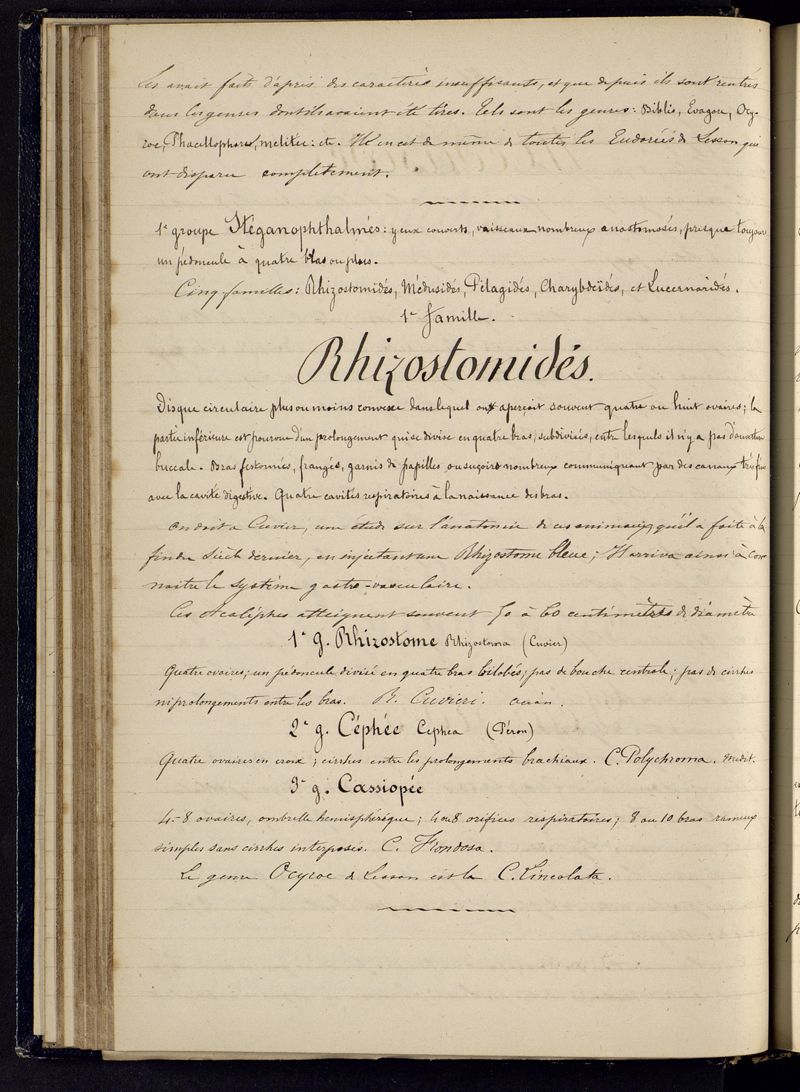 les avait faits d'après des caractères insuffisants, et que depuis ils sont rentrés
dans les genres dont ils avaient été tirés. Tels sont les genres: Biblis, Evagore, Ocy-
roe, Phacellophore, melitee: etc. Il en est de même de toutes les Eudorées de Lesson qui
ont disparu complètement.
1e groupe Stéganophthalmés: yeux couverts, vaisseaux nombreux anastomosés, presque toujours
un pédoncule à quatre bras ou plus.
Cinq familles: Rhizostomidés, Médusidés, Pélagidés, Charybdéidés, et Lucernaridés.
1e famille.
Rhizostomidés.
Disque circulaire plus ou moins convexe dans lequel on aperçoit souvent quatre ou huit ovaires; la
partie inférieure est pourvue d'un prolongement qui se divise en quatre bras, subdivisés, entre lesquels il n'y a pas d'ouverture
buccale. Bras festonnés, frangés, garnis de papilles, ou suçoirs nombreux communiquant par des canaux très fins
avec la cavité digestive. Quatre cavités respiratoires à la naissance des bras.
On doit à Cuvier, une étude sur l'anatomie de ces animaux, qu'il a faite à la
fin du siècle dernier, en injectant une Rhizostome bleue; Il arriva ainsi à con-
naitre le système gastro-vasculaire.
Ces Acalèphes atteignent souvent 50 à 60 centimètres de diamètre
1e g. Rhizostome Rhizostoma (Cuvier)
Quatre ovaires; un pédoncule divisé en quatre bras bilobés; pas de bouche centrale; pas de cirrhes
ni prolongements entre les bras. R. Cuvieri. océan.
2e g. Céphée Cephea (Péron)
Quatre ovaires en croix; cirrhes entre les prolongements brachiaux. C. Polychroma. Médit.
3e g. Cassiopée
4-8 ovaires, ombrelle hémisphérique; 4 ou 8 orifices respiratoires; 8 ou 10 bras rameux
simples sans cirrhes interposés. C. Frondosa.
Le genre Ocyroe de Lesson est la C. Lineolata.